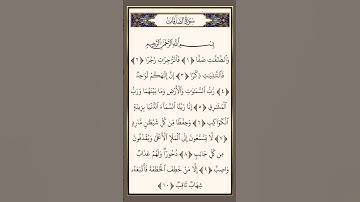 سُورَةُ الصَّافَّاتِ
بِسْمِ اللَّهِ الرَّحْمَٰنِ الرَّحِيمِ
وَالصَّٰٓفَّٰتِ صَفًّا ﴿١﴾ فَالزَّٰجِرَٰتِ زَجْرًا ﴿٢﴾
فَالتَّٰلِيَٰتِ ذِكْرًا ﴿٣﴾ إِنَّ إِلَٰهَكُمْ لَوَٰحِدٌ
﴿٤﴾ رَّبُّ السَّمَٰوَٰتِ وَالْأَرْضِ وَمَا بَيْنَهُمَا وَرَبُّ
الْمَشَٰرِقِ ﴿٥﴾ إِنَّا زَيَّنَّا السَّمَآءَ الدُّنْيَا بِزِينَةٍ
الْكَوَاكِبِ ﴿٦﴾ وَحِفْظًا مِّن كُلِّ شَيْطَٰنٍ مَّارِدٍ
﴿٧﴾ لَّا يَسَّمَّعُونَ إِلَى الْمَلَإِ الْأَعْلَىٰ وَيُقْذَفُونَ
مِن كُلِّ جَانِبٍ ﴿٨﴾ دُحُورًا وَلَهُمْ عَذَابٌ
وَاصِبٌ ﴿٩﴾ إِلَّا مَنْ خَطِفَ الْخَطْفَةَ فَأَتْبَعَهُۥ
شِهَابٌ ثَاقِبٌ ﴿١٠﴾